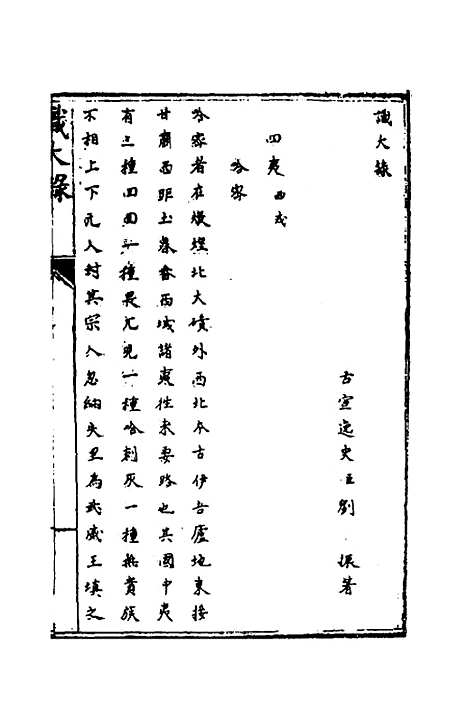 識大錄
古宣逸史臣劉振著
四夷西戎
哈密
哈密者在燉煌北大磧外西北本古伊吾廬地東接
甘肅西距土魯番西域諸夷往來要路也其國中夷
有三種回回一種畏兀兒一種哈剌灰一種無貴族
不相上下元人封其宗人忽納失里為武威王填之
識大錄